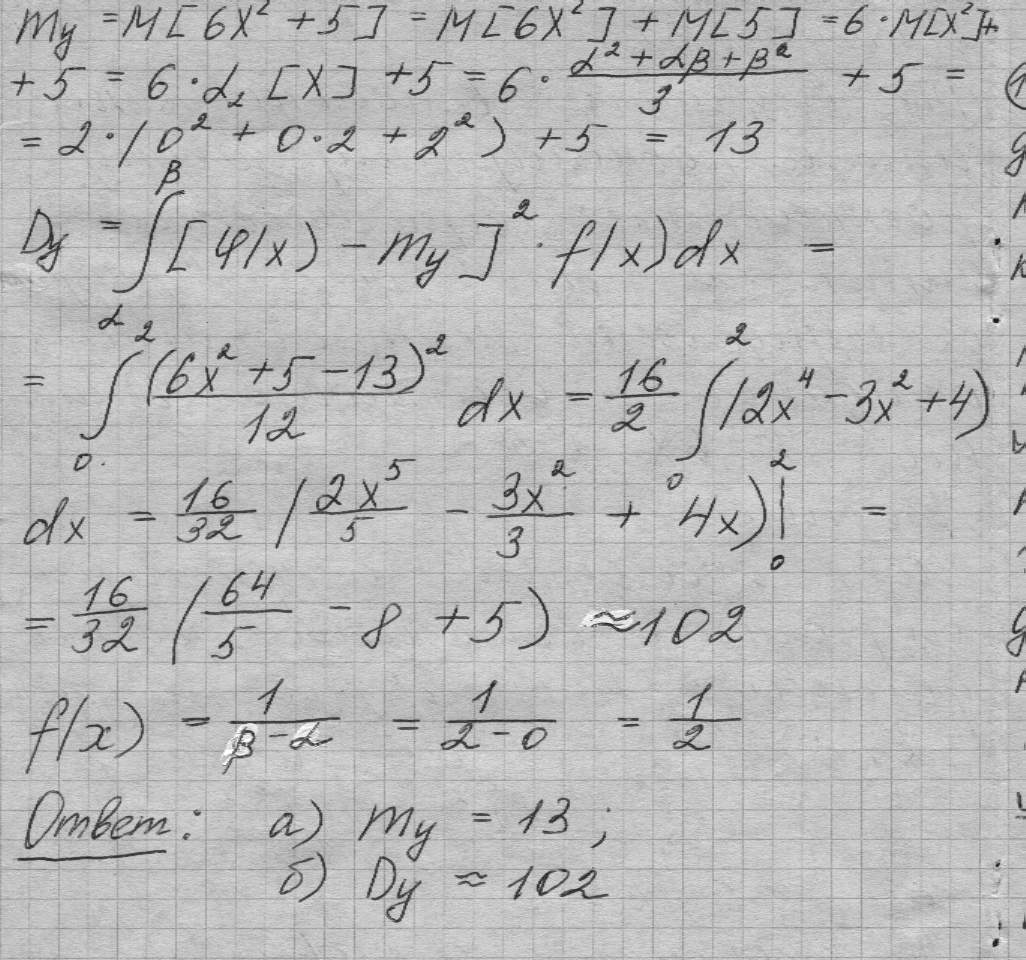 my = M[6X² + 5] = M[6X²] + M[5] = 6·M[X²]+
+5 = 6·α₂[X] + 5 = 6·(α² + αβ + β²)/3 + 5 =
= 2·(0² + 0·2 + 2²) + 5 = 13
Dy = ∫_α^β [φ(x) − my]²·f(x)dx =
= ∫_0^2 (6x² + 5 − 13)²/12 dx = 16/2 ∫_0^2 (2x⁴ − 3x² + 4)
dx = 16/32 (2x⁵/5 − 3x²/3 + 4x)|_0^2 =
= 16/32 (64/5 − 8 + 5) ≈ 102
f(x) = 1/(β − α) = 1/(2 − 0) = 1/2
Ответ: а) my = 13;
б) Dy ≈ 102